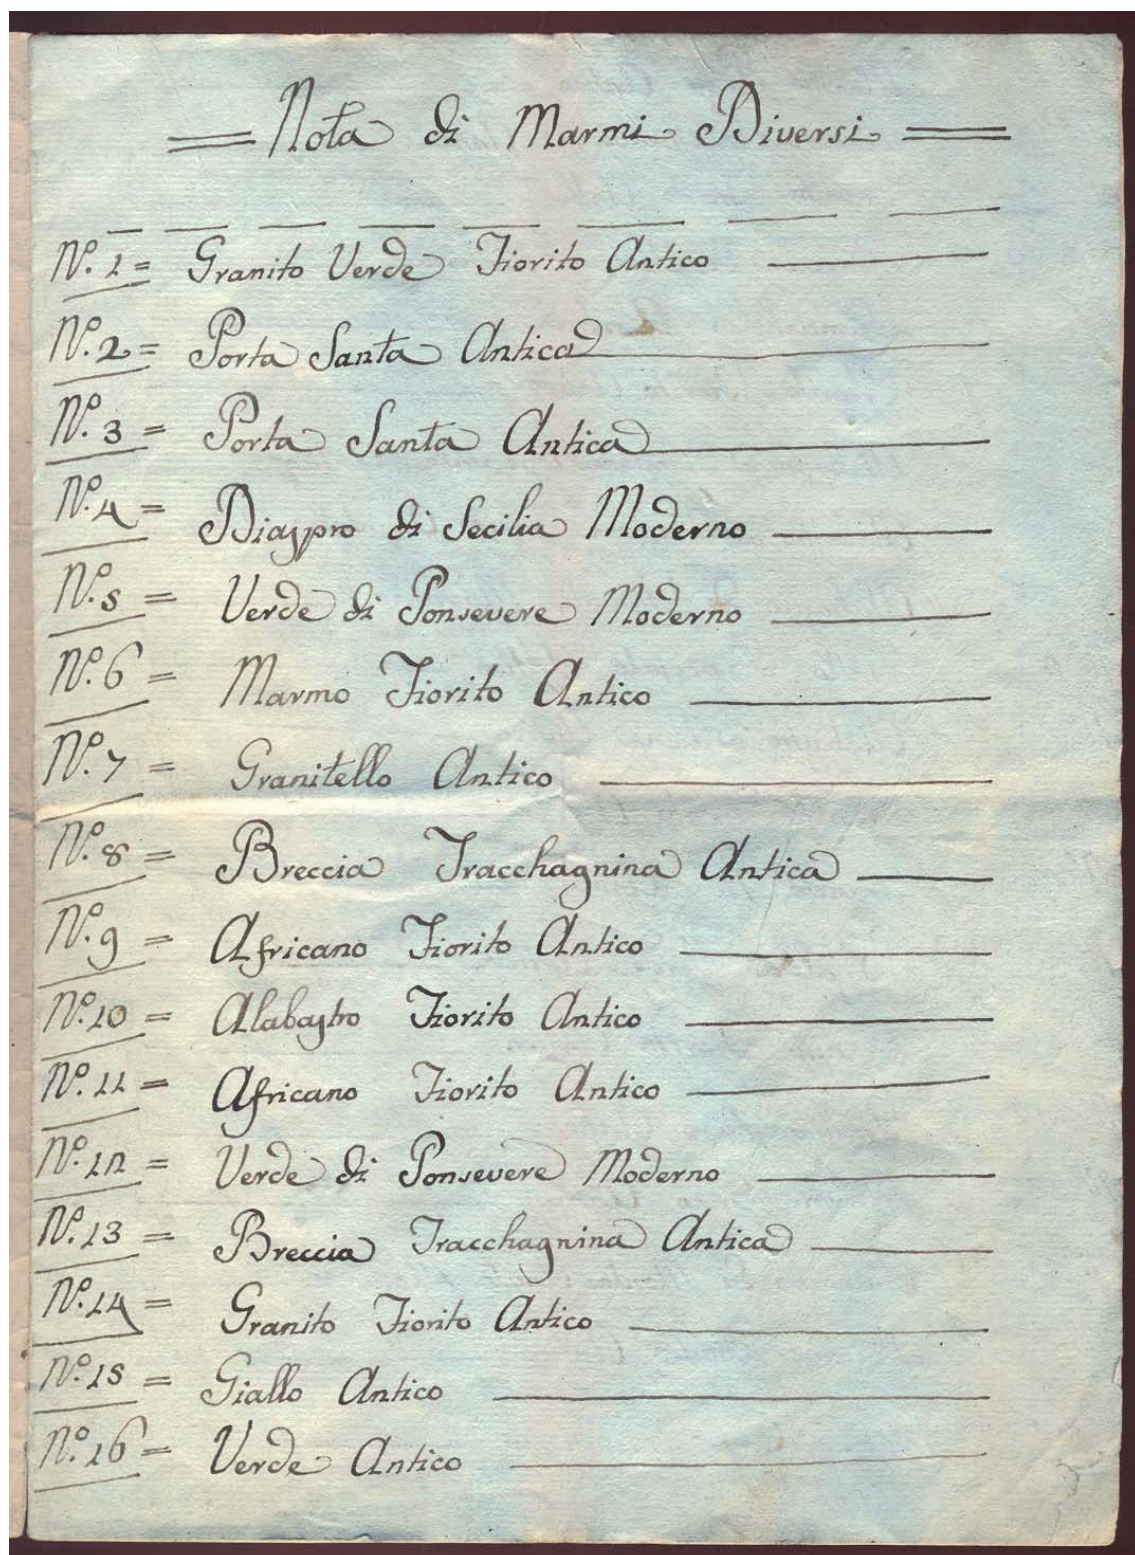 = Nota di Marmi Diversi =
Nº. 1 = Granito Verde Fiorito Antico
Nº. 2 = Porta Santa Antica
Nº. 3 = Porta Santa Antica
Nº. 4 = Diaspro di Secilia Moderno
Nº. 5 = Verde di Ponsevere Moderno
Nº. 6 = Marmo Fiorito Antico
Nº. 7 = Granitello Antico
Nº. 8 = Breccia Tracchagnina Antica
Nº. 9 = Africano Fiorito Antico
Nº. 10 = Alabastro Fiorito Antico
Nº. 11 = Africano Fiorito Antico
Nº. 12 = Verde di Ponsevere Moderno
Nº. 13 = Breccia Tracchagnina Antica
Nº. 14 = Granito Fiorito Antico
Nº. 15 = Giallo Antico
Nº. 16 = Verde Antico